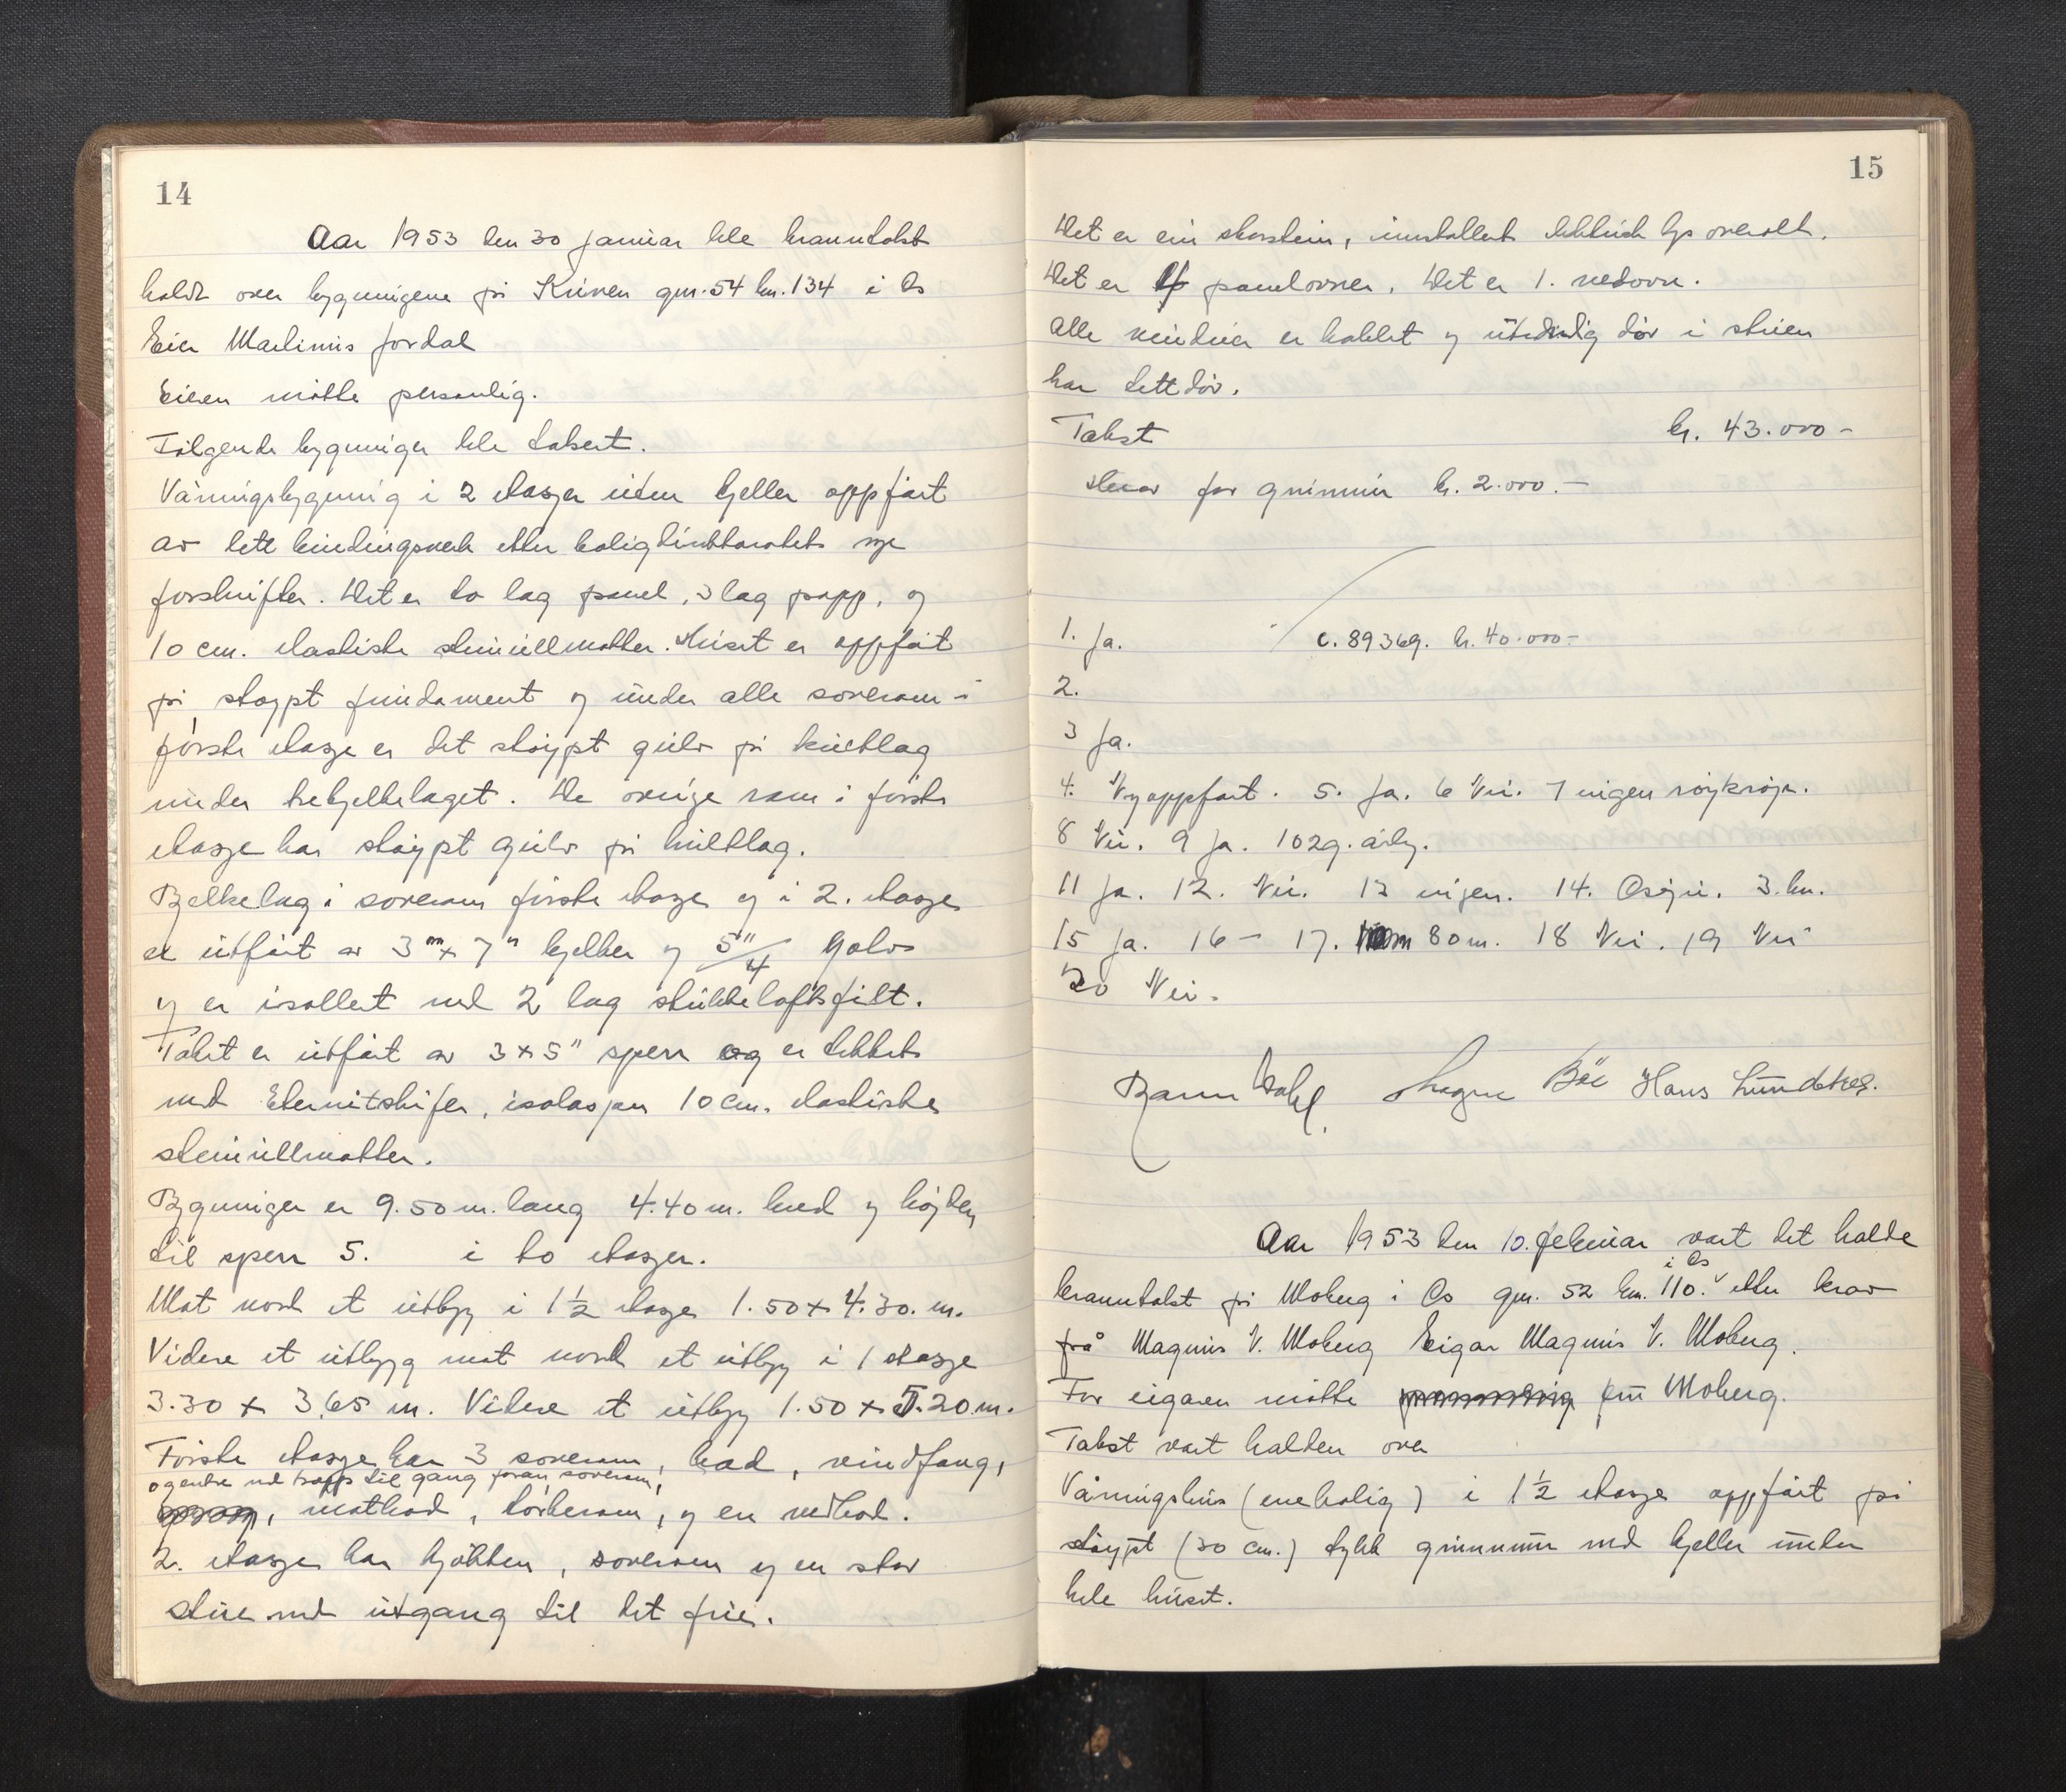 14
Aar 1953 den 30 januar ble branntakst
holdt over bygningene på Kuven gnr. 54 bn. 134 i Os
Eier Martinus Jordal
Eieren møtte personlig.
Følgende bygninger ble taksert.
Våningsbygning i 2 etasjer uten kjeller oppført
av lett bindingsverk etter boligdirektoratets nye
forskrifter. Det er to lag panel, 3 lag papp, og
10 cm. elastiske steinullmatter. Huset er oppført
på støypt fundament og under alle soverom i
første etasje er det støypt gulv på kultlag
under trebjelkelaget. De øvrige rom i første
etasje har støypt gulv på kultlag.
Bjelkelag i soverom første etasje og i 2. etasje
er utført av 3" x 7" bjelker og 5"/4 golv
og er isollert med 2 lag stubbeloftsfilt.
Taket er utført av 3 x 5" sperr og er tekket
med Eternitskifer, isolasjon 10 cm. elastiske
steinullmatter.
Bygningen er 9.50 m. lang 4.40 m. bred og højden
til sperr 5. i to etasjer.
Mot nord et utbyg i 1½ etasje 1.50 x 4.30. m.
Videre et utbygg mot nord et utbyg i 1 etasje
3.30 x 3.65 m. Videre et utbyg 1.50 x 5.20 m.
Første etasje har 3 soverom, bad, vindfang,
og entre med trapp til gang foran soverom,
matbod, tørkerom, og en vedbod.
2. etasje har kjøkken, soverom og en stor
stue med utgang til det frie.
15
Det er ein skorstein, innstallert elektrisk lys overalt.
Det er 4 panelovner. Det er 1. vedovn.
Alle vinduer er koblet og utvendig dør i stuen
har tett dør.
Takst kr. 43.000 -
Herav for grunnmur kr. 2.000.-
1. Ja. c. 89369. kr. 40.000-
2.
3 Ja.
4. Nyoppført. 5. Ja. 6 Nei. 7 ingen røykrøyr.
8 Nei. 9 Ja. 10 2 g. årlig.
11 Ja. 12. Nei. 13 ingen. 14. Osøyri. 3. km.
15 Ja. 16 - 17. 80 m. 18 Nei. 19 Nei
20 Nei.
Magne Bøe Hans Lundetræ.
Aar 1953 den 10. februar vart det halde
branntakst på Moberg i Os gnr. 52 bn. 110. i Os etter krav
frå Magnus V. Moberg Eigar Magnus V. Moberg.
For eigaren møtte fru Moberg.
Takst vart halden over
Våningshus (enebolig) i 1½ etasje oppført på
støypt (30 cm.) tykk grunnmur med kjeller under
hele huset.